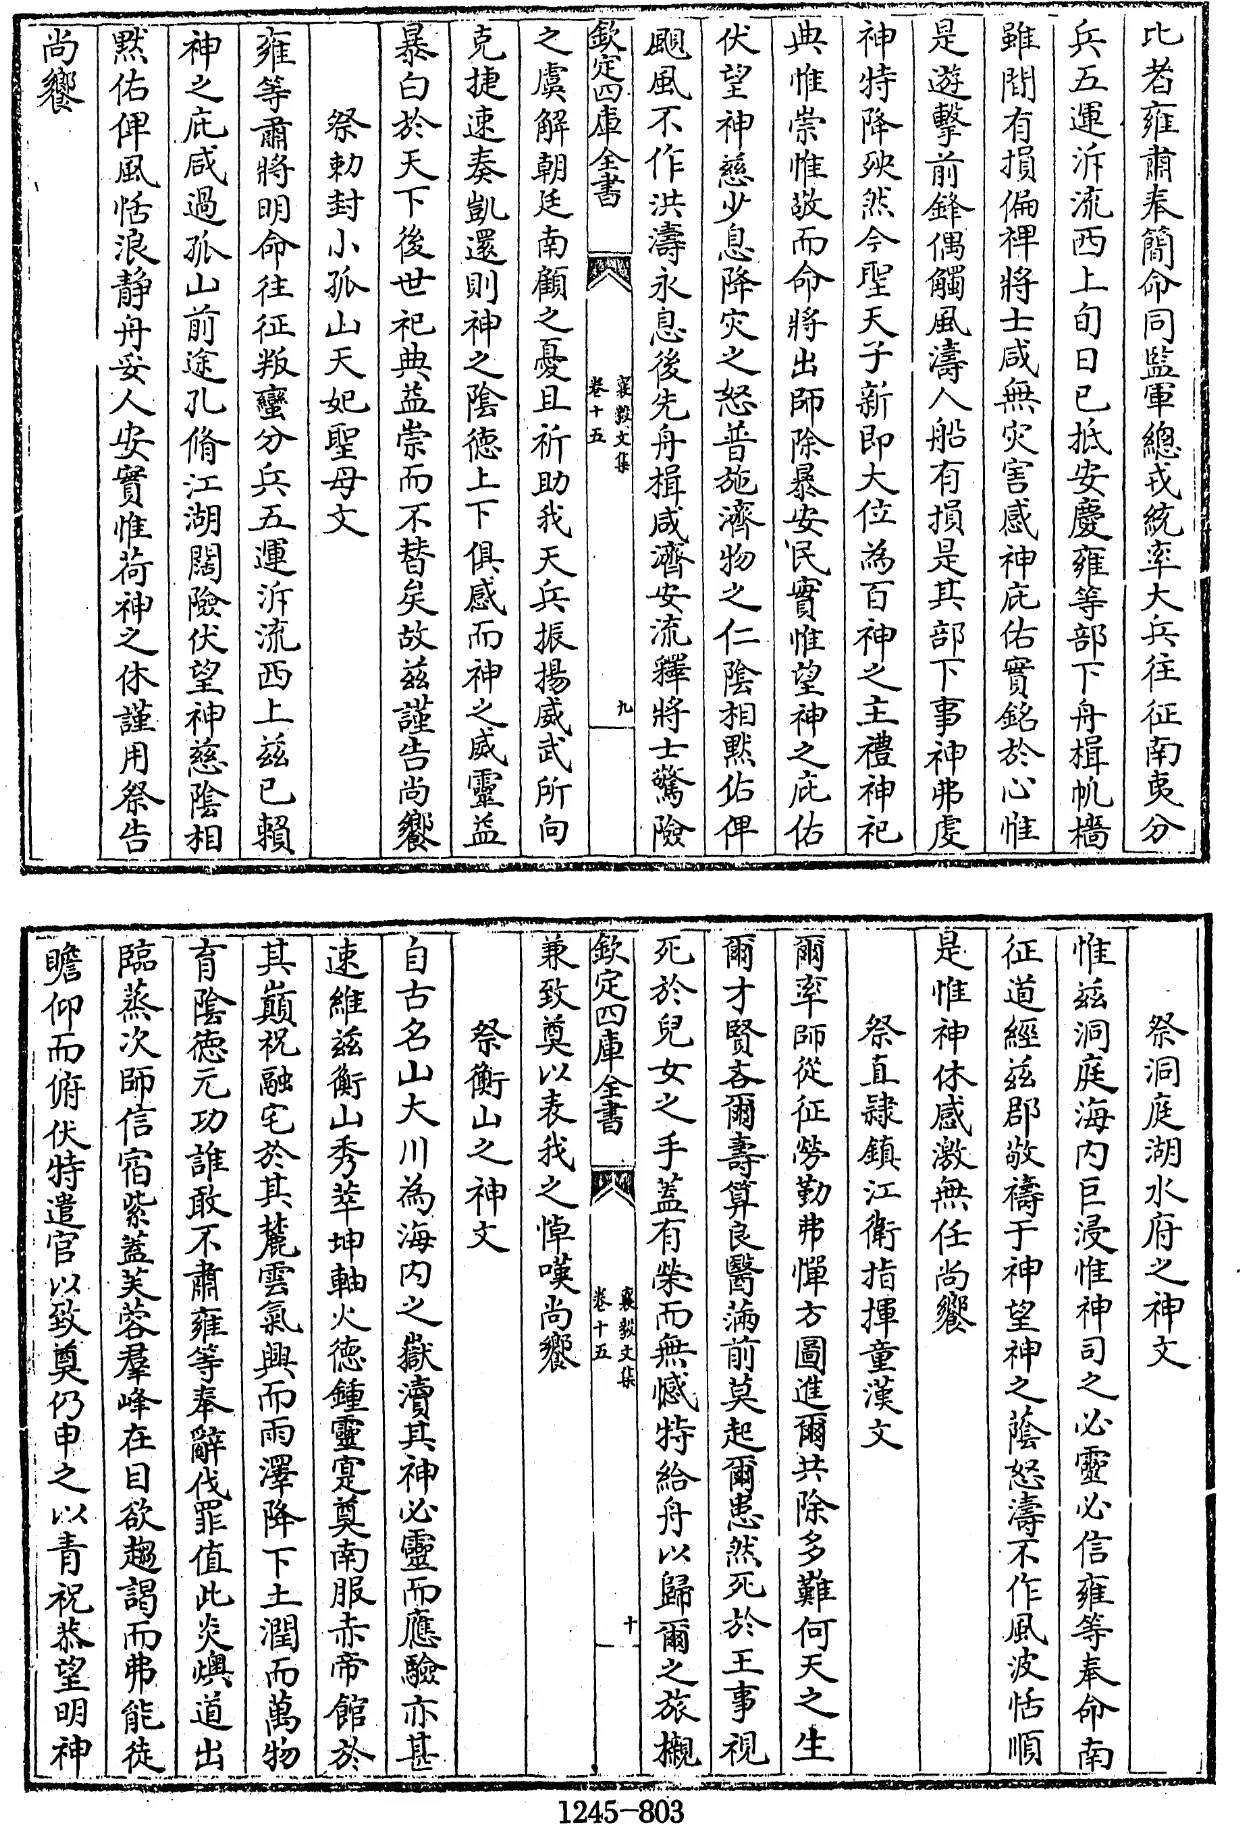 比者雍肅奉簡命同監軍總戎統率大兵往征南夷分
兵五運泝流西上旬日已抵安慶雍等部下舟楫帆檣
雖間有損偏裨將士咸無灾害感神庇佑實銘於心惟
是遊擊前鋒偶觸風濤人船有損是其部下事神弗虔
神特降殃然今聖天子新即大位為百神之主禮神祀
典惟崇惟敬而命將出師除暴安民實惟望神之庇佑
伏望神慈少息降灾之怒普施濟物之仁陰相默佑俾
颶風不作洪濤永息後先舟楫咸濟安流釋將士驚險
欽定四庫全書
襄毅文集
卷十五
九
之虞解朝廷南顧之憂且祈助我天兵振揚威武所向
克捷速奏凱還則神之陰德上下俱感而神之威靈益
暴白於天下後世祀典益崇而不替矣故兹謹告尚饗
祭勅封小孤山天妃聖母文
雍等肅將明命往征叛蠻分兵五運泝流西上兹已賴
神之庇咸過孤山前途孔脩江湖闊險伏望神慈陰相
默佑俾風恬浪靜舟妥人安實惟荷神之休謹用祭告
尚饗
祭洞庭湖水府之神文
惟兹洞庭海内巨浸惟神司之必靈必信雍等奉命南
征道經兹郡敬禱于神望神之蔭怒濤不作風波恬順
是惟神休感激無任尚饗
祭直隷鎮江衛指揮童漢文
爾率師從征勞勤弗憚方圖進爾共除多難何天之生
爾才賢吝爾壽算良醫滿前莫起爾患然死於王事視
死於兒女之手蓋有榮而無憾特給舟以歸爾之旅櫬
欽定四庫全書
襄毅文集
卷十五
十
兼致奠以表我之悼嘆尚饗
祭衡山之神文
自古名山大川為海内之嶽瀆其神必靈而應驗亦甚
速維兹衡山秀萃坤軸火德鍾靈寔奠南服赤帝館於
其巔祝融宅於其麓雲氣興而雨澤降下土潤而萬物
育陰德元功誰敢不肅雍等奉辭伐罪值此炎燠道出
臨蒸次師信宿紫蓋芙蓉羣峰在目欲趨謁而弗能徒
瞻仰而俯伏特遣官以致奠仍申之以青祝恭望明神
1245-803